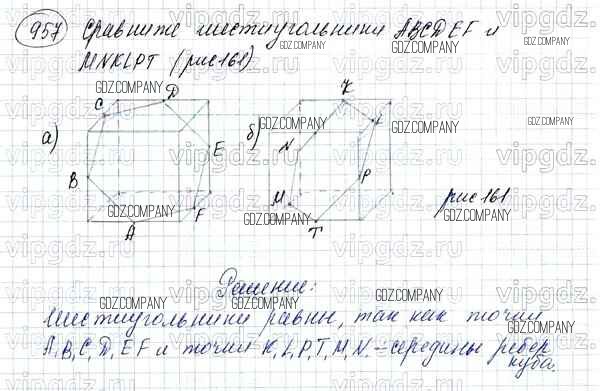 957 Сравните шестиугольники ABCDEF и
MNKLPT (рис 161)
а) C D B E A F
б) K L N P M T
рис 161
Решение:
Шестиугольники равны, так как точки
A, B, C, D, E F и точки K, L, P, T, M, N. – середины ребер
куба.
GDZ.COMPANY
vipgdz.com